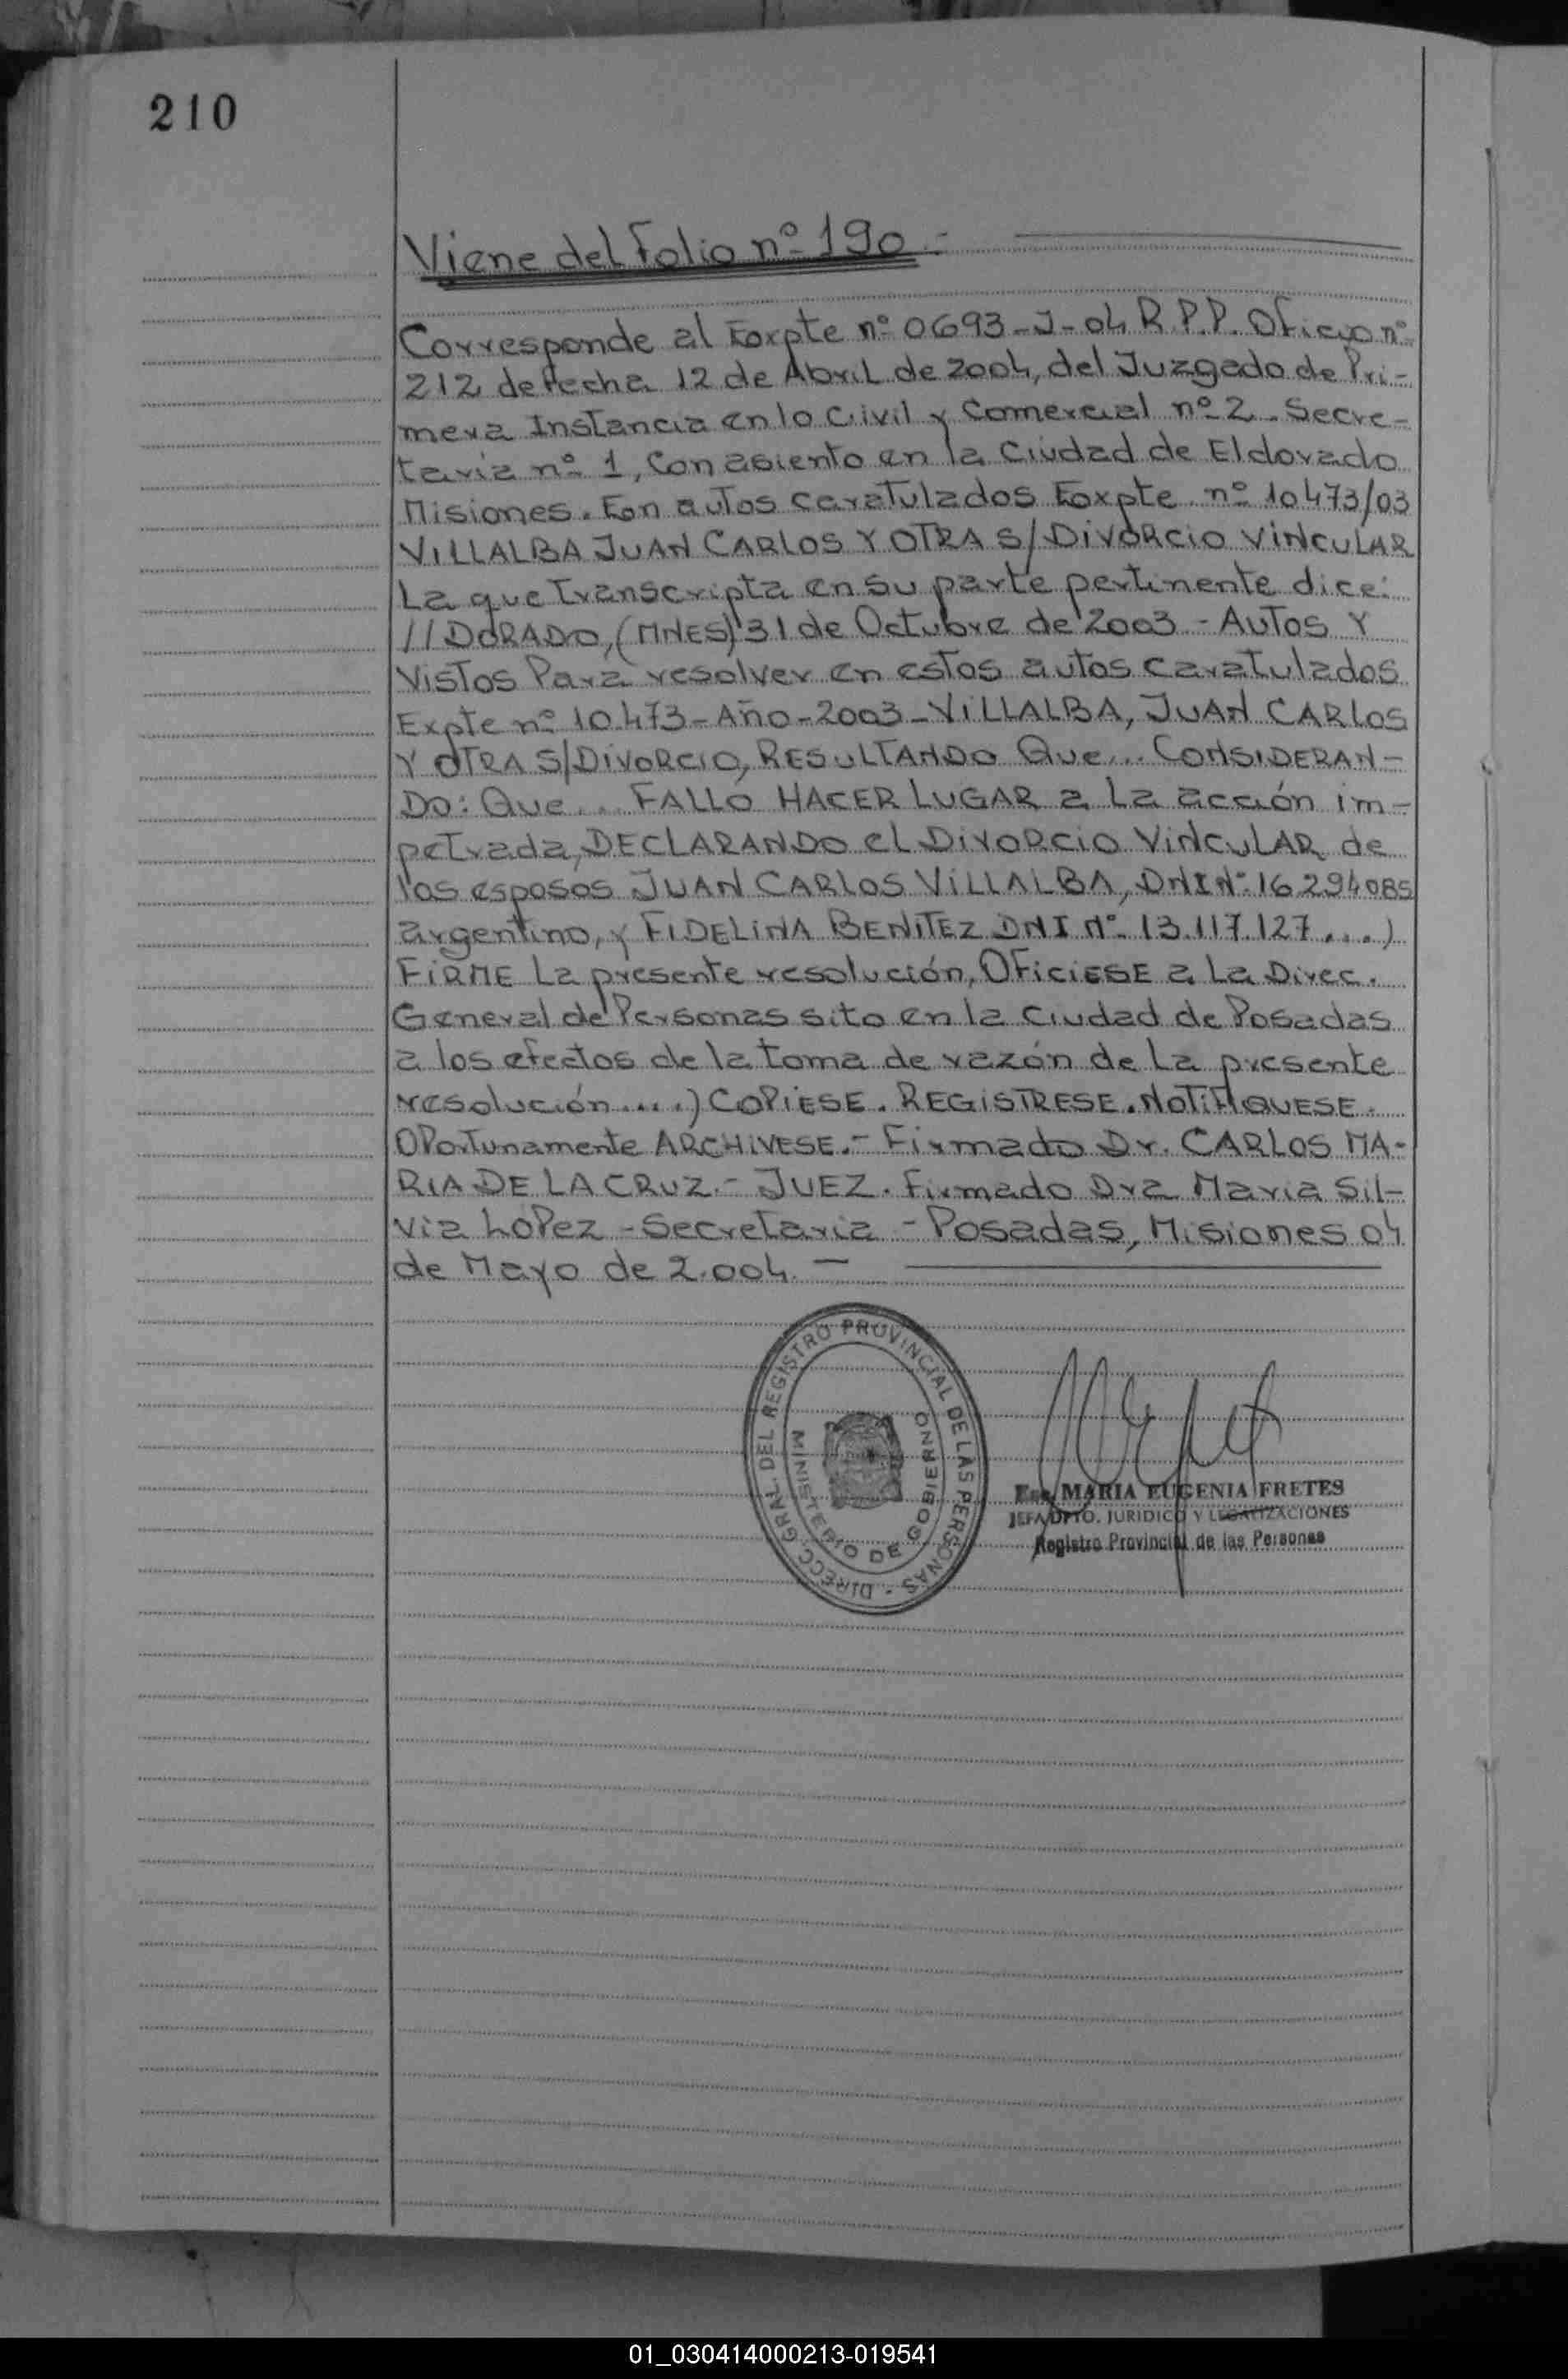 210
Viene del Folio nº 190.-
Corresponde al Expte nº 0693-J-04 R.P.P. Oficio nº
212 de Fecha 12 de Abril de 2004, del Juzgado de Pri-
mera Instancia en lo Civil y Comercial nº 2. Secre-
taria nº 1, Con asiento en la Ciudad de Eldorado
Misiones. En autos caratulados Expte nº 10473/03
VILLALBA JUAN CARLOS Y OTRA S/DIVORCIO VINCULAR
La que transcripta en su parte pertinente dice:
//DORADO, (MNES) 31 de Octubre de 2003 - AUTOS Y
VISTOS Para resolver en estos autos caratulados
Expte nº 10.473-Año-2003-VILLALBA, JUAN CARLOS
Y OTRA S/DIVORCIO, RESULTANDO Que... CONSIDERAN-
DO: Que... FALLO HACER LUGAR a la acción im-
petrada, DECLARANDO el DIVORCIO VINCULAR de
los esposos JUAN CARLOS VILLALBA, DNI Nº 16.294085
argentino, y FIDELINA BENITEZ DNI Nº 13.117.127....)
FIRME La presente resolución, OFICIESE a La Direc.
General de Personas sito en la Ciudad de Posadas
a los efectos de la toma de razón de la presente
resolución....) COPIESE. REGISTRESE. NOTIFIQUESE.
Oportunamente ARCHIVESE.- Firmado Dr. CARLOS MA-
RIA DE LA CRUZ.- JUEZ. Firmado Dra Maria Sil-
via López - Secretaria - Posadas, Misiones 04
de Mayo de 2.004.-
DIRECC. GRAL. DEL REGISTRO PROVINCIAL DE LAS PERSONAS -
MINISTERIO DE GOBIERNO
Esc. MARIA EUGENIA FRETES
JEFA DPTO. JURIDICO Y LEGALIZACIONES
Registro Provincial de las Personas
01_030414000213-019541